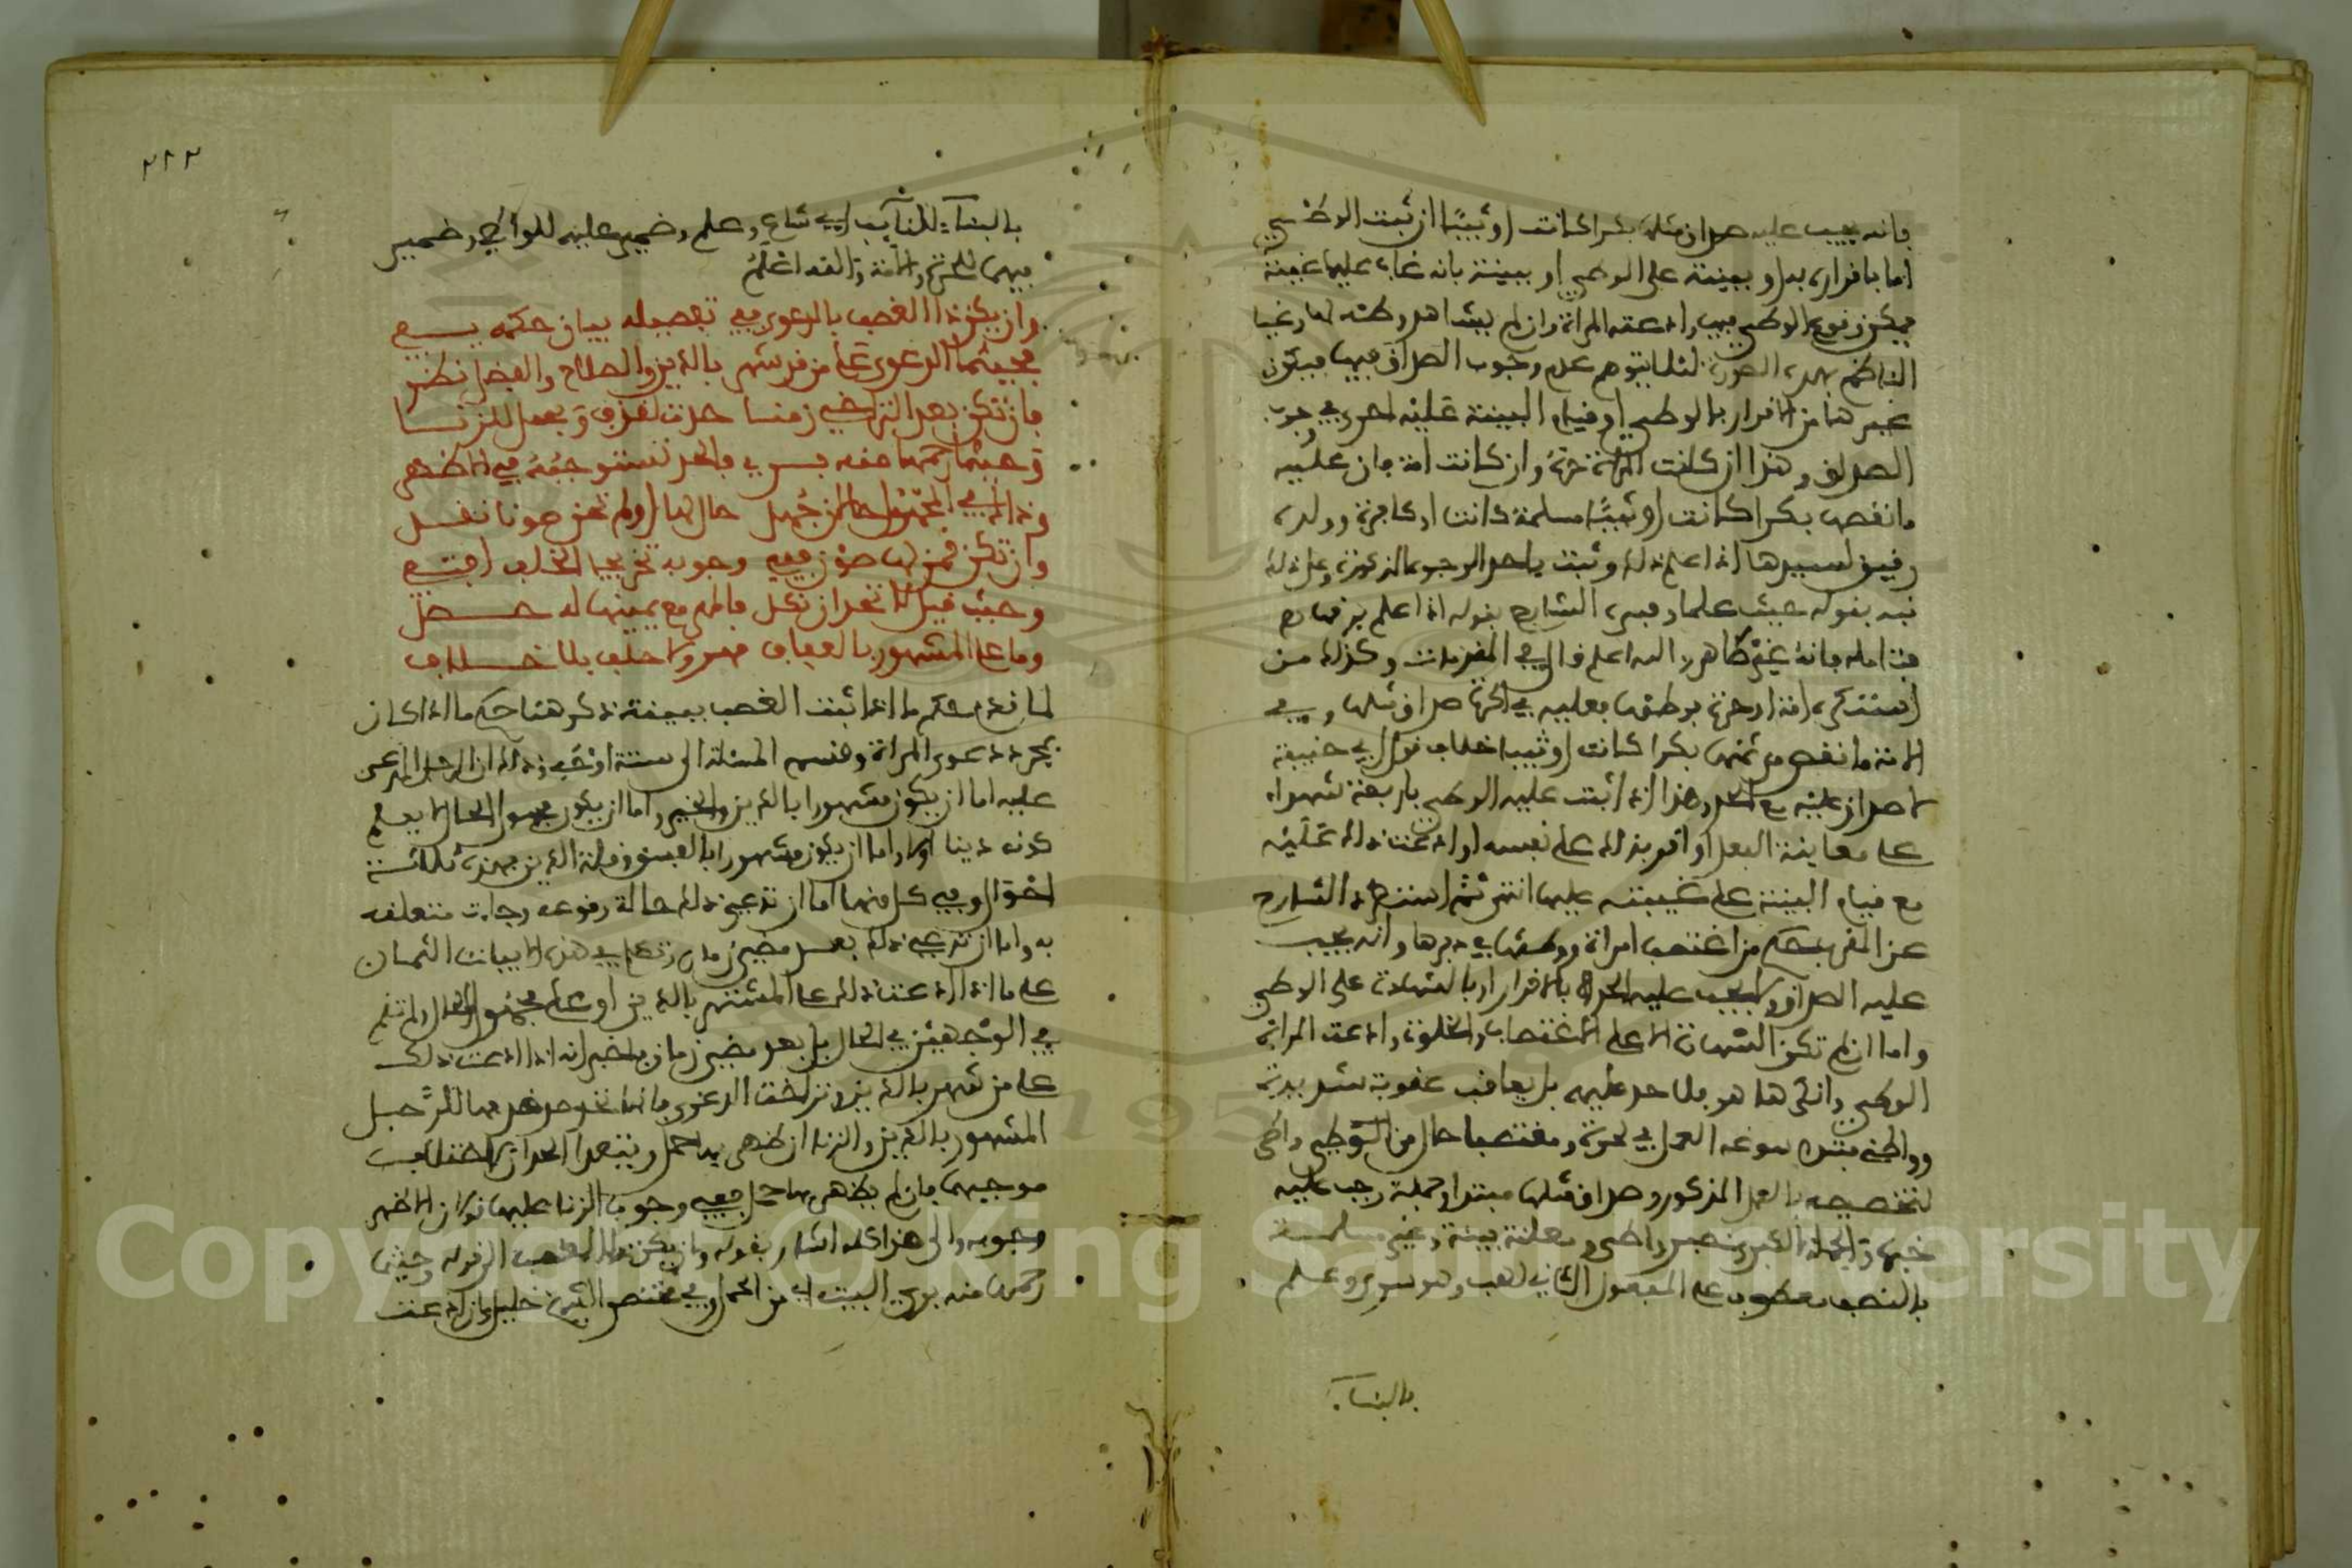 فانه يجب عليه صداق مثلها بكرا كانت او ثيبا ان ثبت الوطئ
اما باقراره به او ببينة على الوطئ او ببينة بانه غاب عليها غيبة
يمكن وقوع الوطئ فيها وادعته المراة وان لم يشاهد وطئه لها وغيا
الناظم بهذه الصورة لئلا يتوهم عدم وجوب الصداق فيها فيكون
غيرها من الاقرار بالوطئ او قيام البينة عليه احرى في وجوب
الصداق وهذا ان كانت المراة حرة وان كانت امة فان عليه
ما نقصها بكرا كانت او ثيبا مسلمة كانت او كافرة وولده
رقيق لسيدها اذا علم ذلك وثبت باحد الوجوه المذكورة وعلى ذلك
نبه بقوله حيث علما وفسره الشارح بقوله اذا علم
فتامله فانه غير ظاهر والله اعلم قال في المقربات وكذلك من
استكره امة او حرة فوطئها فعليه في الحرة صداق مثلها وفي
الامة ما نقص من ثمنها بكرا كانت او ثيبا خلاف قول ابي حنيفة
لا صداق عليه مع الحد وهذا اذا ثبت عليه الوطئ باربعة شهداء
على معاينة الفعل او اقر بذلك على نفسه او ادعت ذلك عليه
مع قيام البينة على غيبته عليها انتهى ثم استظهر الشارح
عن المقرب حكم من اغتصب امراة ووطئها في دبرها وانه يجب
عليه الصداق ولا يجب عليه الحد الا بالاقرار او بالشهادة على الوطئ
واما ان لم تكن الشهادة الا على الاغتصاب والخلوة وادعت المراة
الوطئ وانكر هو فلا حد عليه بل يعاقب عقوبة شديدة
وواطئ مبتدا سوغه العمل في لحرة ومغتصبا حال من الواطئ
لتخصيصه بالعمل المذكور وصداق مثلها مبتدا وجملة وجب عليه
خبرها والجملة الكبرى
بالنصب معطوف على المفعول الثاني وهو سوى وعلم
بالبناء
٢٢٢
بالبناء للنائب اي شاع وعلم وضمير عليه للواطئ وضمير
فيهما للحرة والامة والله اعلم
وان يكن ذا الغصب بالدعوى ففي تفصيله بيان حكمه يفي
فحيثما الدعوى على من قد شهر بالدين والصلاح والفضل نظر
فان تكن بعد التراخي زمنا حدت لقذف وبحمل للزنا
وحيثما رحمها منه بري فالحد تستوجبه في الاظهر
وذاك في المجهول حالا ان جهل حال لها او لم تحز صونا نقل
وان تكن ممن لها صون ففي وجوبه تخريجا الخلف اقتفي
وحيث قيل لا تحد ان نكل فالمهر مع يمينها له حصل
وما على المشهور بالعفاف مهر ولا حلف بلا خلاف
لما قدم حكم ما اذا ثبت الغصب ببينة ذكر هنا حكم ما اذا كان
بمجرد دعوى المراة وقسم المسئلة الى ستة اوجه وذلك ان الرجل المدعى
عليه اما ان يكون مشهورا بالدين والخير واما ان يكون مجهول الحال لا يعلم
كونه دينا او لا واما ان يكون مشهورا بالفسق وقلة الدين فهذه ثلاثة
احوال وفي كل منها اما ان تدعي ذلك حالة وقوعه وجاءت متعلقة
به واما ان تدعي ذلك بعد مضي زمان وتكلم في هذه الابيات الثمان
على ما اذا ادعت ذلك على المشتهر بالدين او على مجهول الحال ولم تقم
في الوجهين في الحال بل بعد مضي زمان فاخبر انه اذا ادعت ذلك
على من شهر بالدين وتراخت الدعوى فانها تحد حد قذفها للرجل
المشهور بالدين والزنا ان ظهر بها حمل ويتعدد الحدان لاختلاف
موجبهما فان لم يظهر بها حمل ففي وجوب الزنا عليها قولان الاظهر
وجوبه والى هذا كله اشار بقوله وان يكن ذا الغصب الى قوله وحيثما
رحمها منه بري البيت اي من الحمل وفي مختصر الشيخ خليل وان ادعت